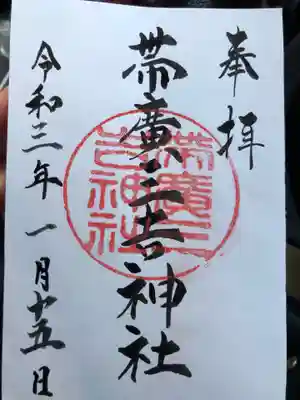 奉拝
帯廣三吉神社
帯廣三吉神社
令和三年一月十五日